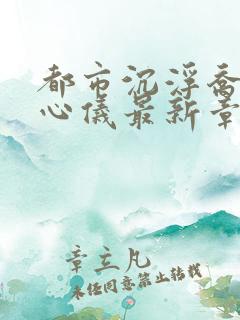 都市沉浮乔
心仪最新章
章立凡
未任同意禁止转载